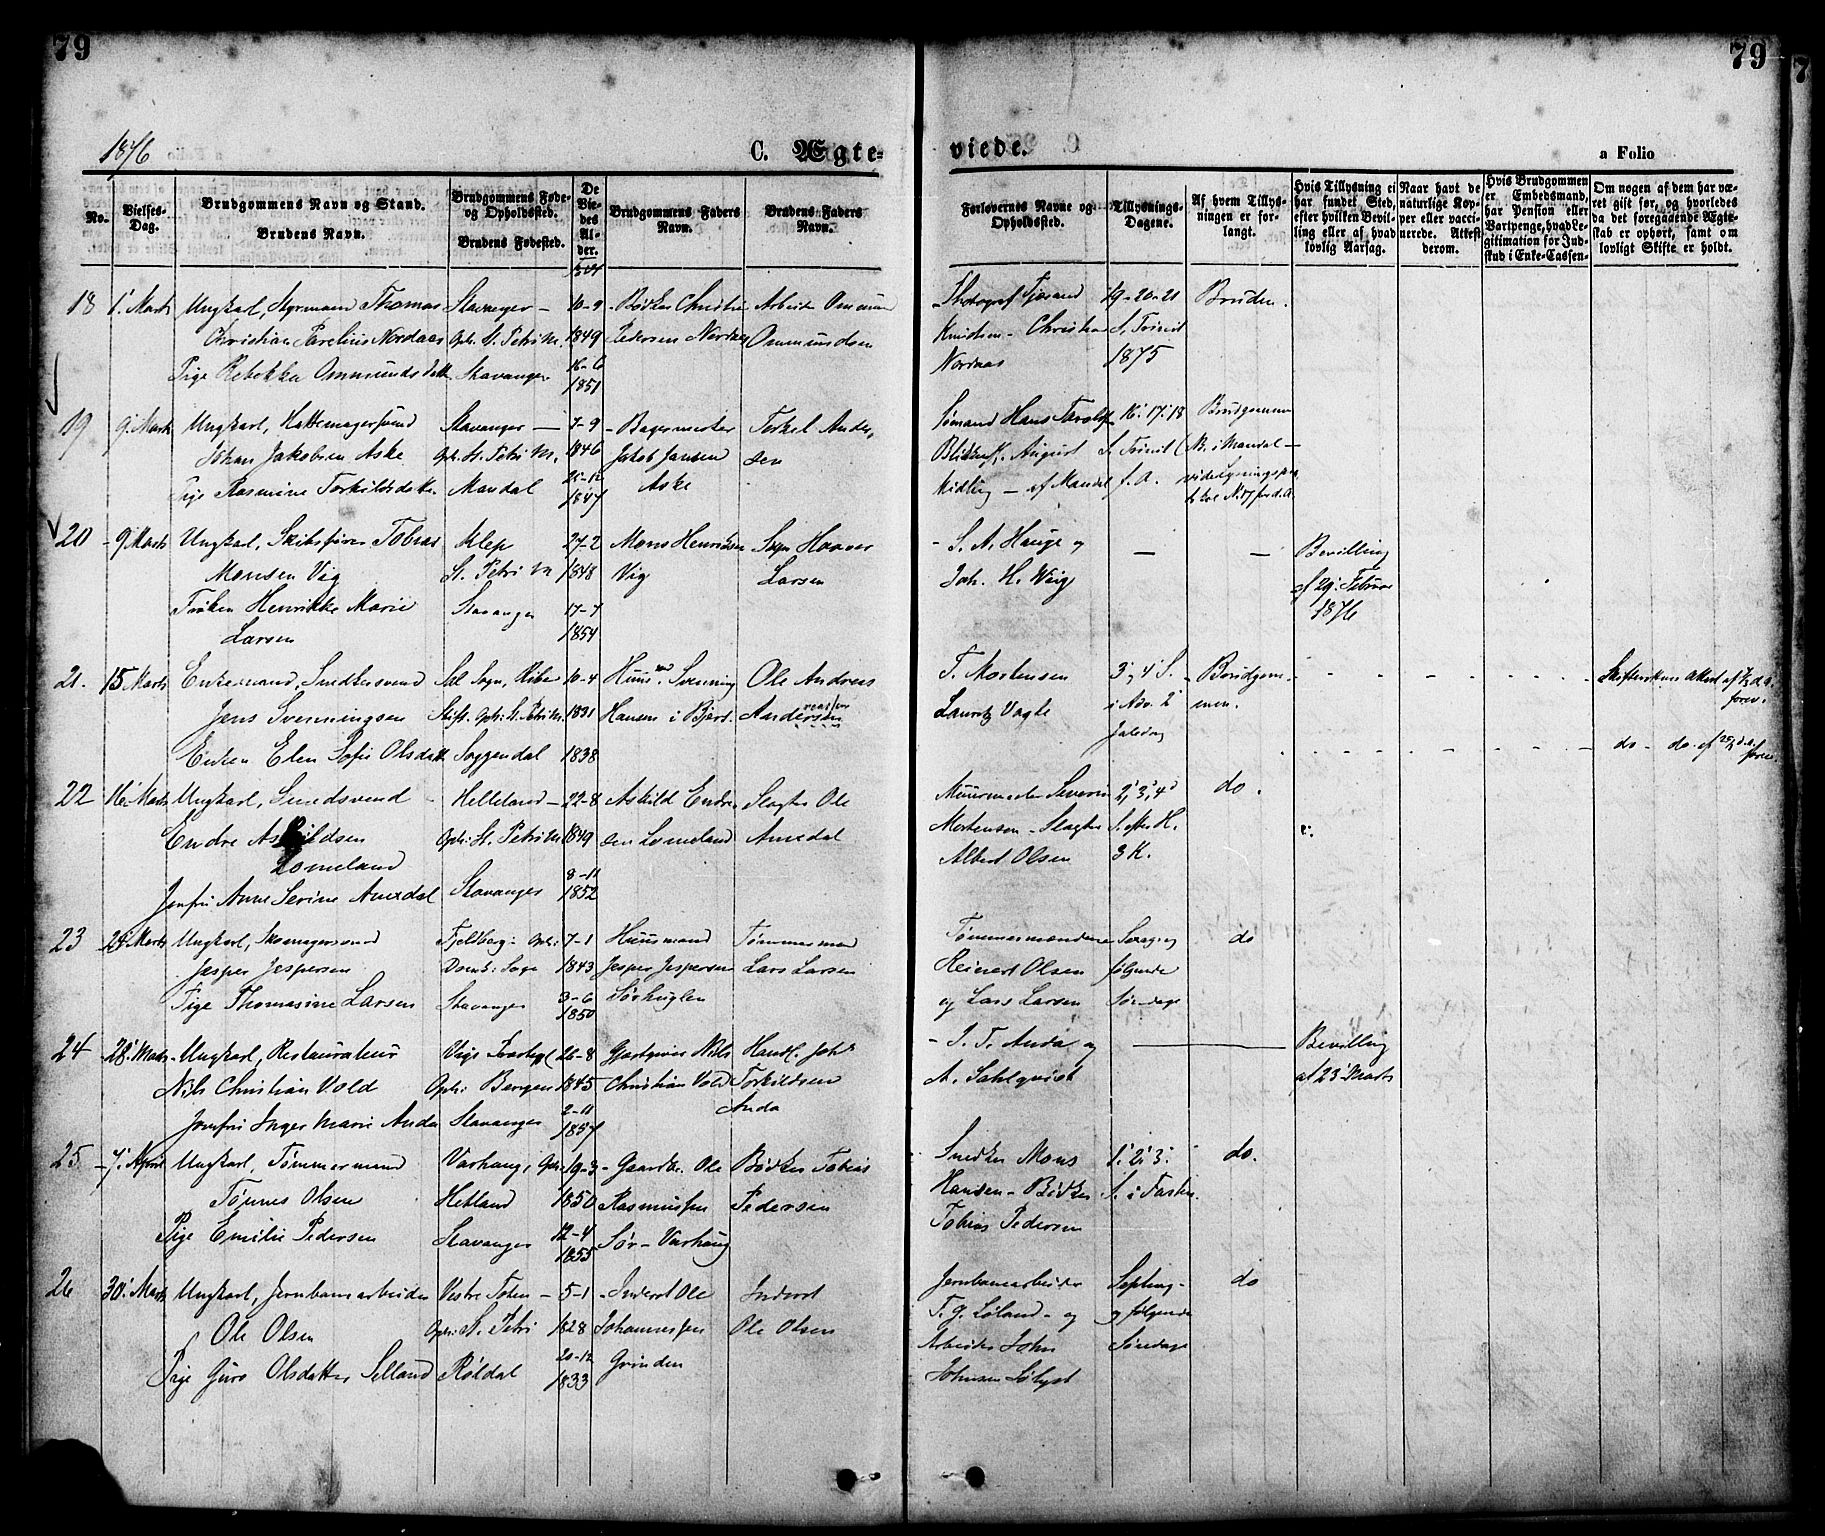 79
79
1876
C. Ægte-
viede.
a Folio
No.
Vielses-Dag.
Brudgommens Navn og Stand.
Brudens Navn.
Brudgommens Føde- og Opholdssted.
Brudens Fødested.
De Viedes Alder.
Brudgommens Faders Navn.
Brudens Faders Navn.
Forlovernes Navne og Opholdssted.
Tillysnings-Dagene.
Af hvem Tillysningen er forlangt.
Hvis Tillysning ei har fundet Sted, efter hvilken Bevilling eller af hvad lovlig Aarsag.
Naar havt de naturlige Kopper eller vaccinerede. Attest derom.
Hvis Brudgommen er Embedsmand, har Pension eller Vartpenge, hvad Legitimation for Indskud i Enke-Cassen-
Om nogen af dem har været gift før, og hvorledes da det foregaaende Ægteskab er ophørt, samt om lovligt Skifte er holdt.
18 1' Marts Ungkarl, Styrmand Thomas Stavanger – 10-9 Bødker Christen Arbeider Ommund
Christian Parelius Nordaas Oph: St. Petri M. 1849 Pedersen Nordaas Ommundsen
Pige Rebekka Ommundsdatt. Stavanger 16-6 1851
Photograf Tjørand 19-20-21 Bruden.
Knudsen – Christian S. Trinit
Nordaas 1875
19 9' Marts Ungkarl, Hattemagersvend Stavanger – 7-9 Bagermester Torkel Ander,
Johan Jakobsen Aske Oph. St. Petri M. 1846 Jakob Jansen sen
Pige Rasmine Torkildsdatter Mandal 1847 Aske
Sømand Hans 16' 17' 18 Brudgommen
August S. Trinit (No. i Mandal –
Kidling – af Mandal f. A.
20 9' Marts Ungkarl, Skibsfører Tobias Klep 27-2 Mons Henriksen Haaver
Monsen Vig St. Petri M 1848 Vig Larsen
Frøken Henrikke Marie Stavanger 17-7
Larsen 1854
S. A. Hauge og – – Bevilling
Joh. H. Wiig af 29' Februar
1876
21. 15 Marts Enkemand, Snedkersvend Sal Sogn, Ribe 10-4 Huusmd Svenning Ole Andreas
Jens Svenningsen Stift. Oph: St. Petri M. 1831 Hansen i Andersen
Enken Elen Sofie Olsdatt Soggendal 1838
T. Mortensen 3' 4' S. Brudgom- Skifterettens Attest af
Lauritz Vagle i Adv. 2' men. forev.
Juledag do – do. af
22 16' Marts Ungkarl, Smedsvend Helleland – 22-8 Askild Endre Slagter Ole
Endre Askildsen Oph: St. Petri M 1849 sen Lomeland Auedal
Lomeland
Jomfru Anne Serine Auedal Stavanger 8-11 1852
Muurmester Severin 2', 3', 4' do.
Mortensen – Slagter S. efter H.
Albert Olsen 3 K.
23 Marts Ungkarl, Skomagersvend Fjeldberg – Oph: 7-1 Huusmand Tømmermand
Jesper Jespersen Domk: Sogn 1843 Jesper Jespersen Lars Larsen
Pige Thomasine Larsen Stavanger 3-6 1850 Sørhuglen
Tømmermændene Sexag. og do
Reinert Olsen følgende
og Lars Larsen Søndage
24 28' Marts Ungkarl, Restaurateur 26-8 Gjestgiver Nils Handl. Joh.
Nils Christian Vold Oph: Bergen 1845 Christian Vold Torkildsen
Jomfru Inger Marie Anda Stavanger 2-11 1857 Anda
J. T. Anda og Bevilling
A. Sahlqvist af 23' Marts
25 7' April Ungkarl, Tømmermand Varhaug, Oph: 19-3 Gaardbr. Ole Bødker Tobias
Tønnes Olsen Hetland 1850 Rasmussen Pedersen
Pige Emilie Pedersen Stavanger 12-4 1855 Sør-Varhaug
Snedker Mons 1' 2' 3' do.
Hansen – Bødker S. i Fasten.
Tobias Pedersen
26 30' Marts Ungkarl, Jernbanearbeider Vestre Toten – 5-1 Inderst Ole Inderst
Ole Olsen Oph: St. Petri 1828 Johannessen Ole Olsen
Pige Guro Olsdatter Selland Røldal 20-12 1833 Grinden
Jernbanearbeider Septuag. do
T. G. Løland – og og følgende
Arbeider John Søndage
Johnsen Sølyst